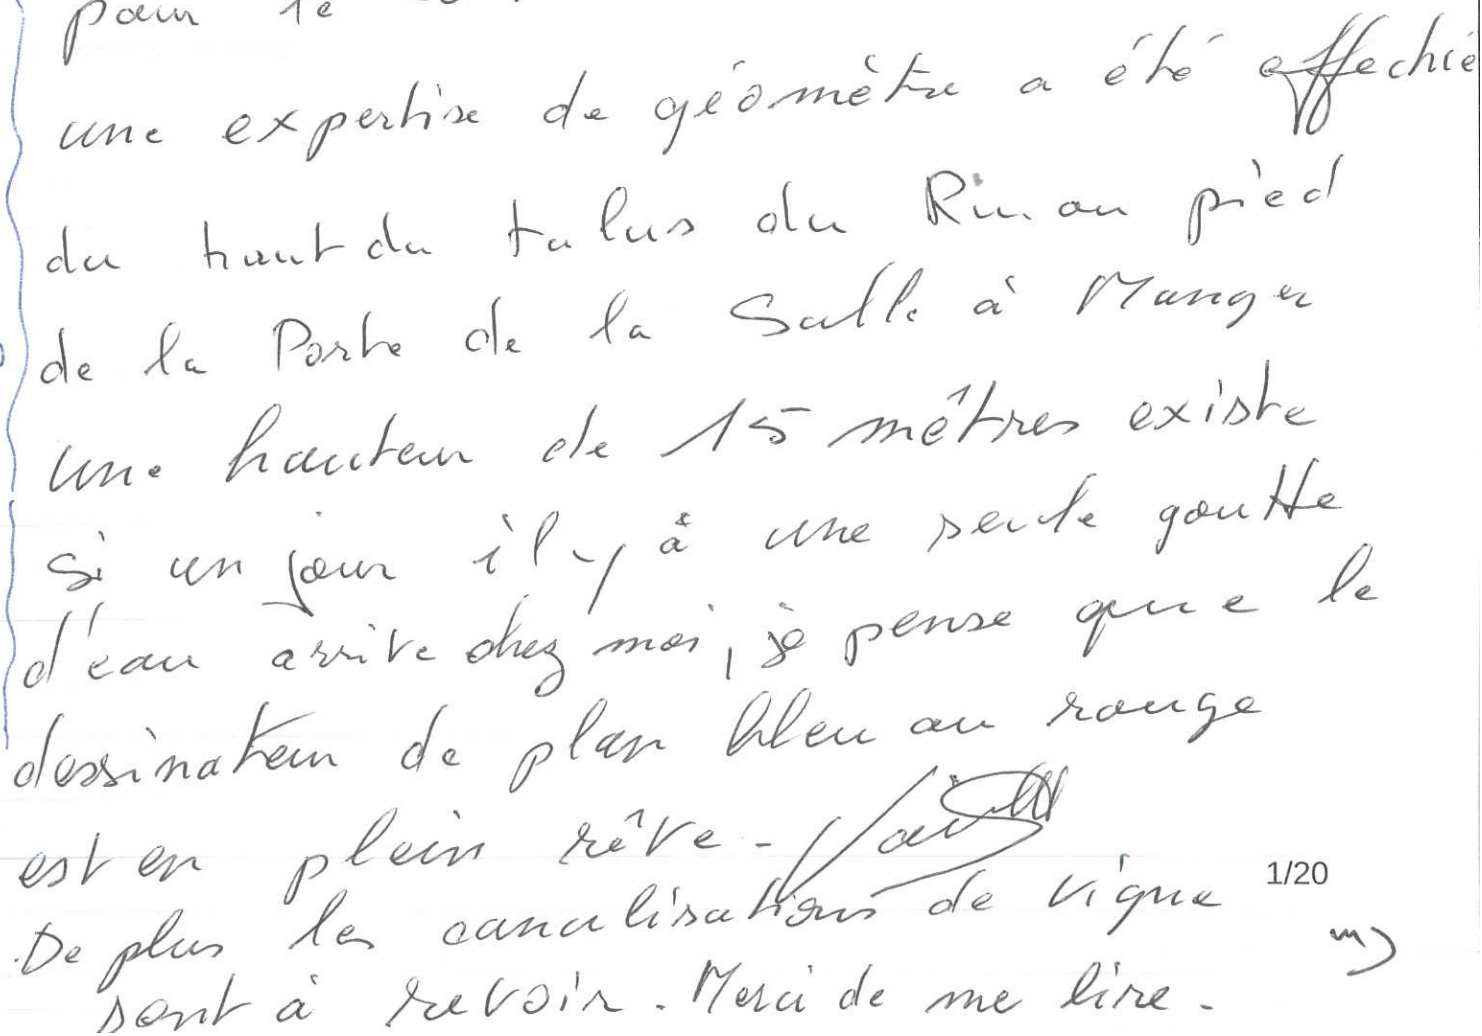 pour le
une expertise de géomètre a été effectué
du haut du talus du Riu au pied
de la Porte de la Salle à Manger
une hauteur de 15 mêtres existe
si un jour il y à une seule goutte
d'eau arrive chez moi, je pense que le
dessinateur de plan bleu au rouge
est en plein rêve -
1/20
De plus les canalisations de vigne
sont à revoir. Merci de me lire.